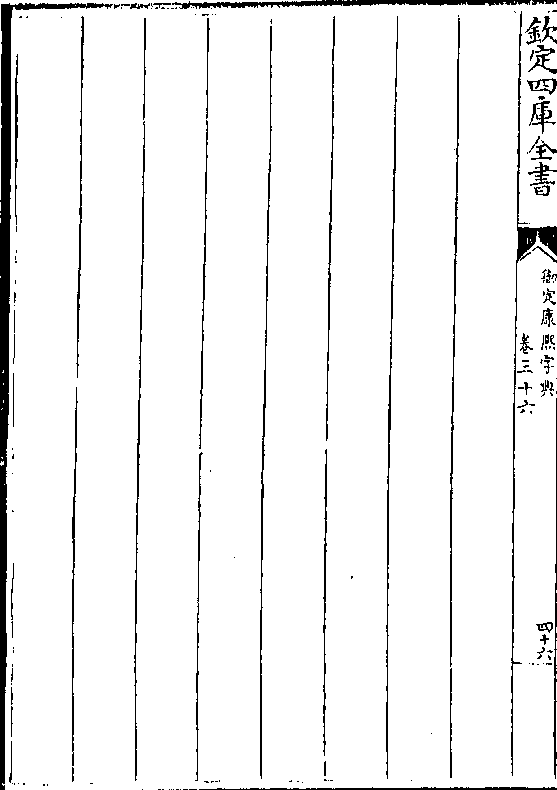 欽定四庫全書
御定康熙字典
卷三十六
四十六